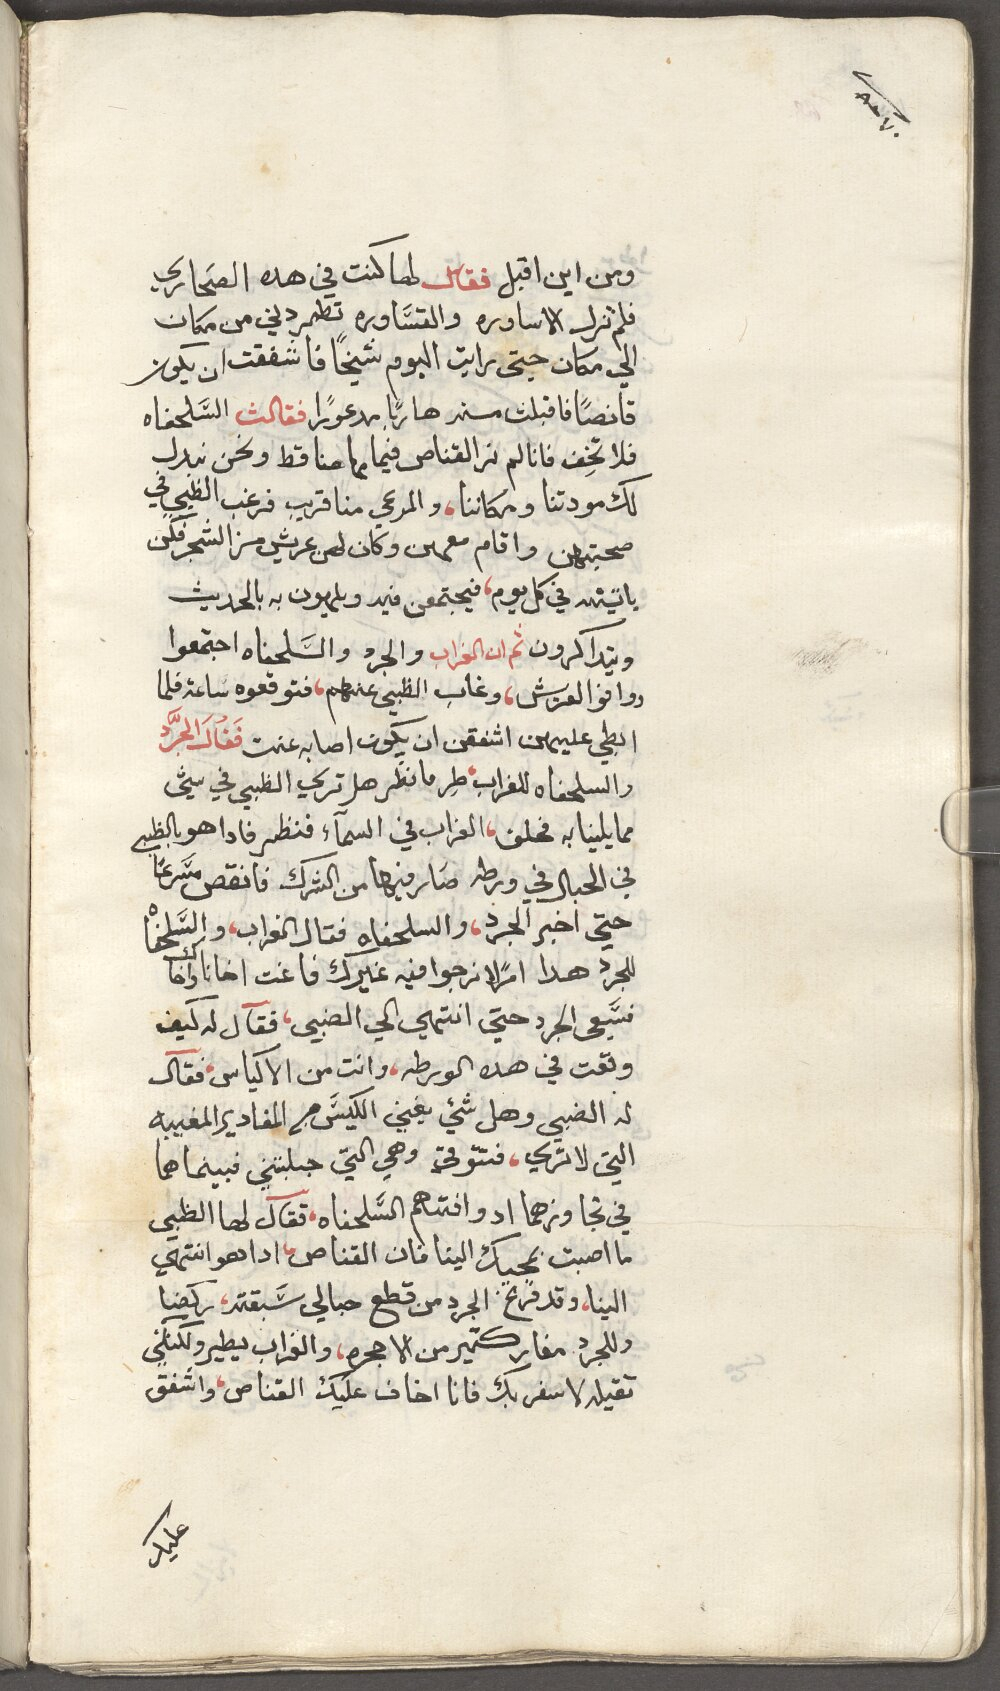 ومن اين اقبل فقال لها كنت في هده الصحاري
فلم تزل الاساوره والقساوره تطمردني من مكان
الي مكان حيتى رايت اليوم شيخًا فاشفقت ان يكون
قانصًا فاقبلت منه هاربًا مدعورًا فقالت السلحفاه
فلا تخف فانا لم نر القناص فيما هاهنا قط ونحن نبدل
لك مودتنا ومكاننا، والمرعي منا قريب فرغب الظبي في
صحبتهن واقام معهن وكان لهن عريش من الشجر فكن
ياتينه في كل يوم، فيجتمعن فيه ويلهون به بالحديث
ويتداكرون ثم ان الغراب والجرد والسلحفاه اجتمعوا
ووافوا العريش، وغاب الظبي عنهم، فتوقعوه ساعة فلما
ابطي عليهن اشفقن ان يكون اصابه عنت فقال الجرد
والسلحفاه للغراب طِر فانظر هل تري الظبي في شي
مما يلينا به فحلق، الغراب في السمآء فنظر فادا هو بالظبي
في الحبال في ورطه صار فيها من الشرك فانقص مسرعًا
حتي اخبر الجرد، والسلحفاه فقال الغراب، والسلحفاه
للجرد هدا امرًا لا نرجوا فيه غيرك فاغت اخانا واخاك
فسعي الجرد حتي انتهي الي الضبي، فقال له كيف
وقعت في هده الورطه، وانت من الاكياس فقال
له الضبي وهل شيً يغني الكيس مع المقادير المغيبه
التي لا تري، فتتوقي وهي التي حبلتني فبينما هما
في تجاوزهما اد وافتهم السلحفاه، فقال لها الظبي
ما اصبت بمجيك الينا فان القناص، ادا هو انتهي
الينا، وقد فرغ الجرد من قطع حبالي سبقته، ركضا
وللجرد مغار كتير من الاحجره، والغراب يطير ولكنكي
تقيله لا سفر بك فانا اخاف عليك القناص، واشفق
عليك